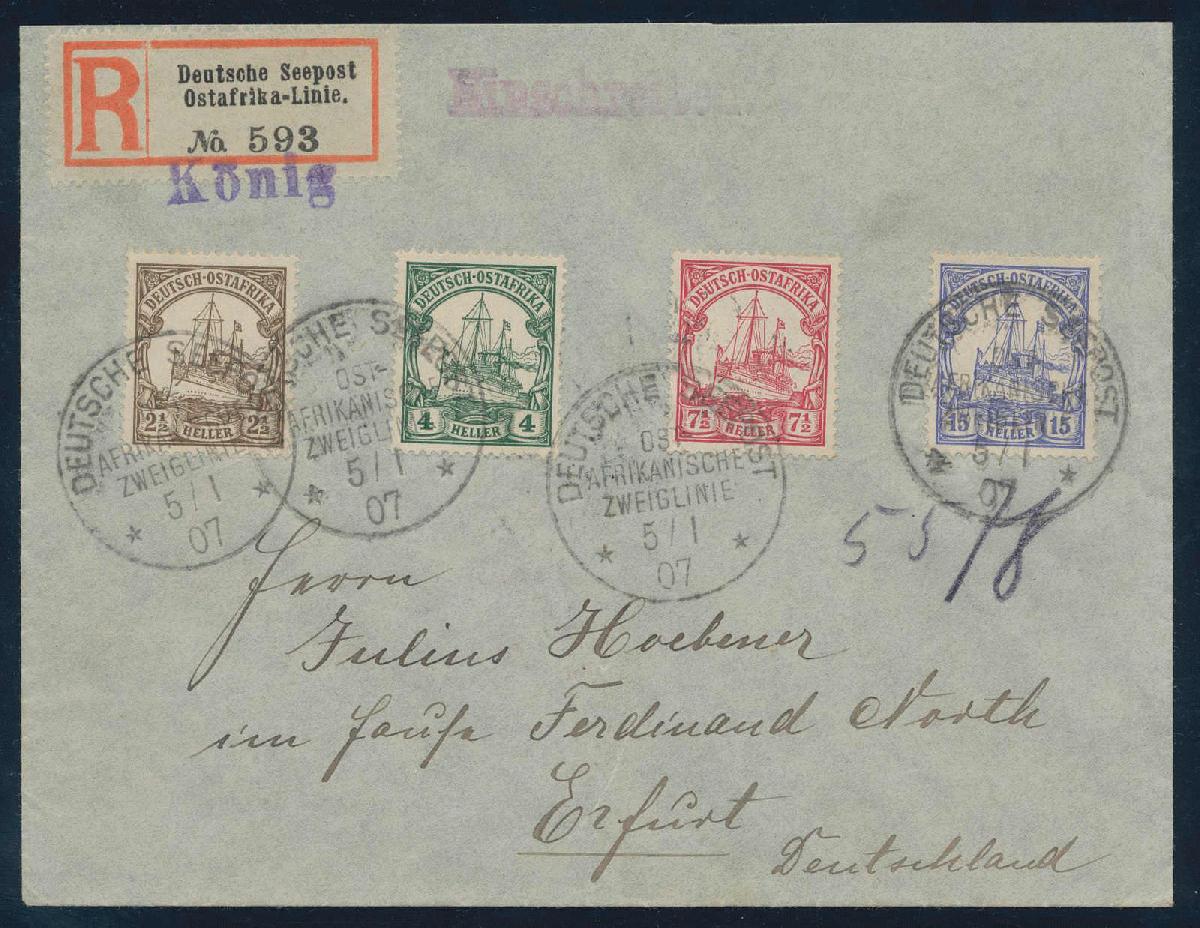 R
Deutsche Seepost
Ostafrika-Linie.
No. 593
König
Einschreiben.
DEUTSCH-OSTAFRIKA
2½ 2½
HELLER
DEUTSCH-OSTAFRIKA
4 4
HELLER
DEUTSCH-OSTAFRIKA
7½ 7½
HELLER
DEUTSCH-OSTAFRIKA
15 15
HELLER
DEUTSCHE SEEPOST
OST-
AFRIKANISCHE
ZWEIGLINIE
5/1
07
DEUTSCHE SEEPOST
OST-
AFRIKANISCHE
ZWEIGLINIE
5/1
07
DEUTSCHE SEEPOST
OST-
AFRIKANISCHE
ZWEIGLINIE
5/1
07
DEUTSCHE SEEPOST
AFRIKANISCHE
5/1
07
55/8
Herrn
Julius Hoebener
im Hause Ferdinand North
Erfurt
Deutschland